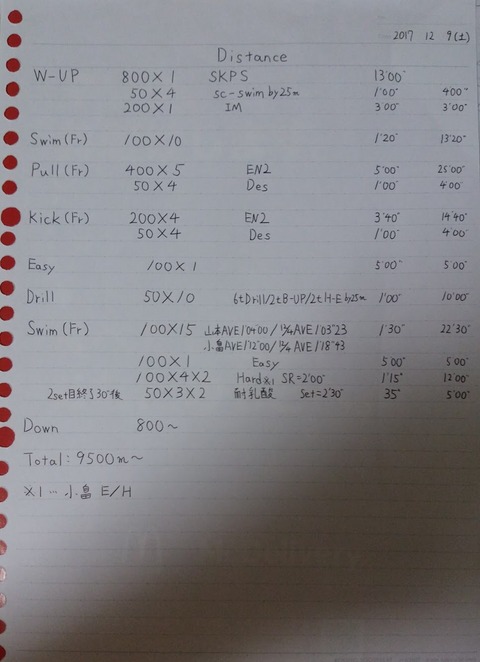 2017 12 9(土)
Distance
W-UP 800×1 SKPS 13'00"
50×4 SC-swim by25m 1'00" 4'00"
200×1 IM 3'00" 3'00"
Swim(Fr) 100×10 1'20" 13'20"
Pull(Fr) 400×5 EN2 5'00" 25'00"
50×4 Des 1'00" 4'00"
Kick(Fr) 200×4 EN2 3'40" 14'40"
50×4 Des 1'00" 4'00"
Easy 100×1 5'00" 5'00"
Drill 50×10 6tDrill/2tB-UP/2tH-E by25m 1'00" 10'00"
Swim(Fr) 100×15 山本AVE1'04"00 / AVE1'03"23 1'30" 22'30"
小畠AVE1'12"00 / AVE1'18"43
100×1 Easy 5'00" 5'00"
100×4×2 Hard※1 SR=2'00" 1'15" 12'00"
2set目終了30"後 50×3×2 耐乳酸 Set=2'30" 35" 5'00"
Down 800~
Total: 9500m~
※1…小畠 E/H